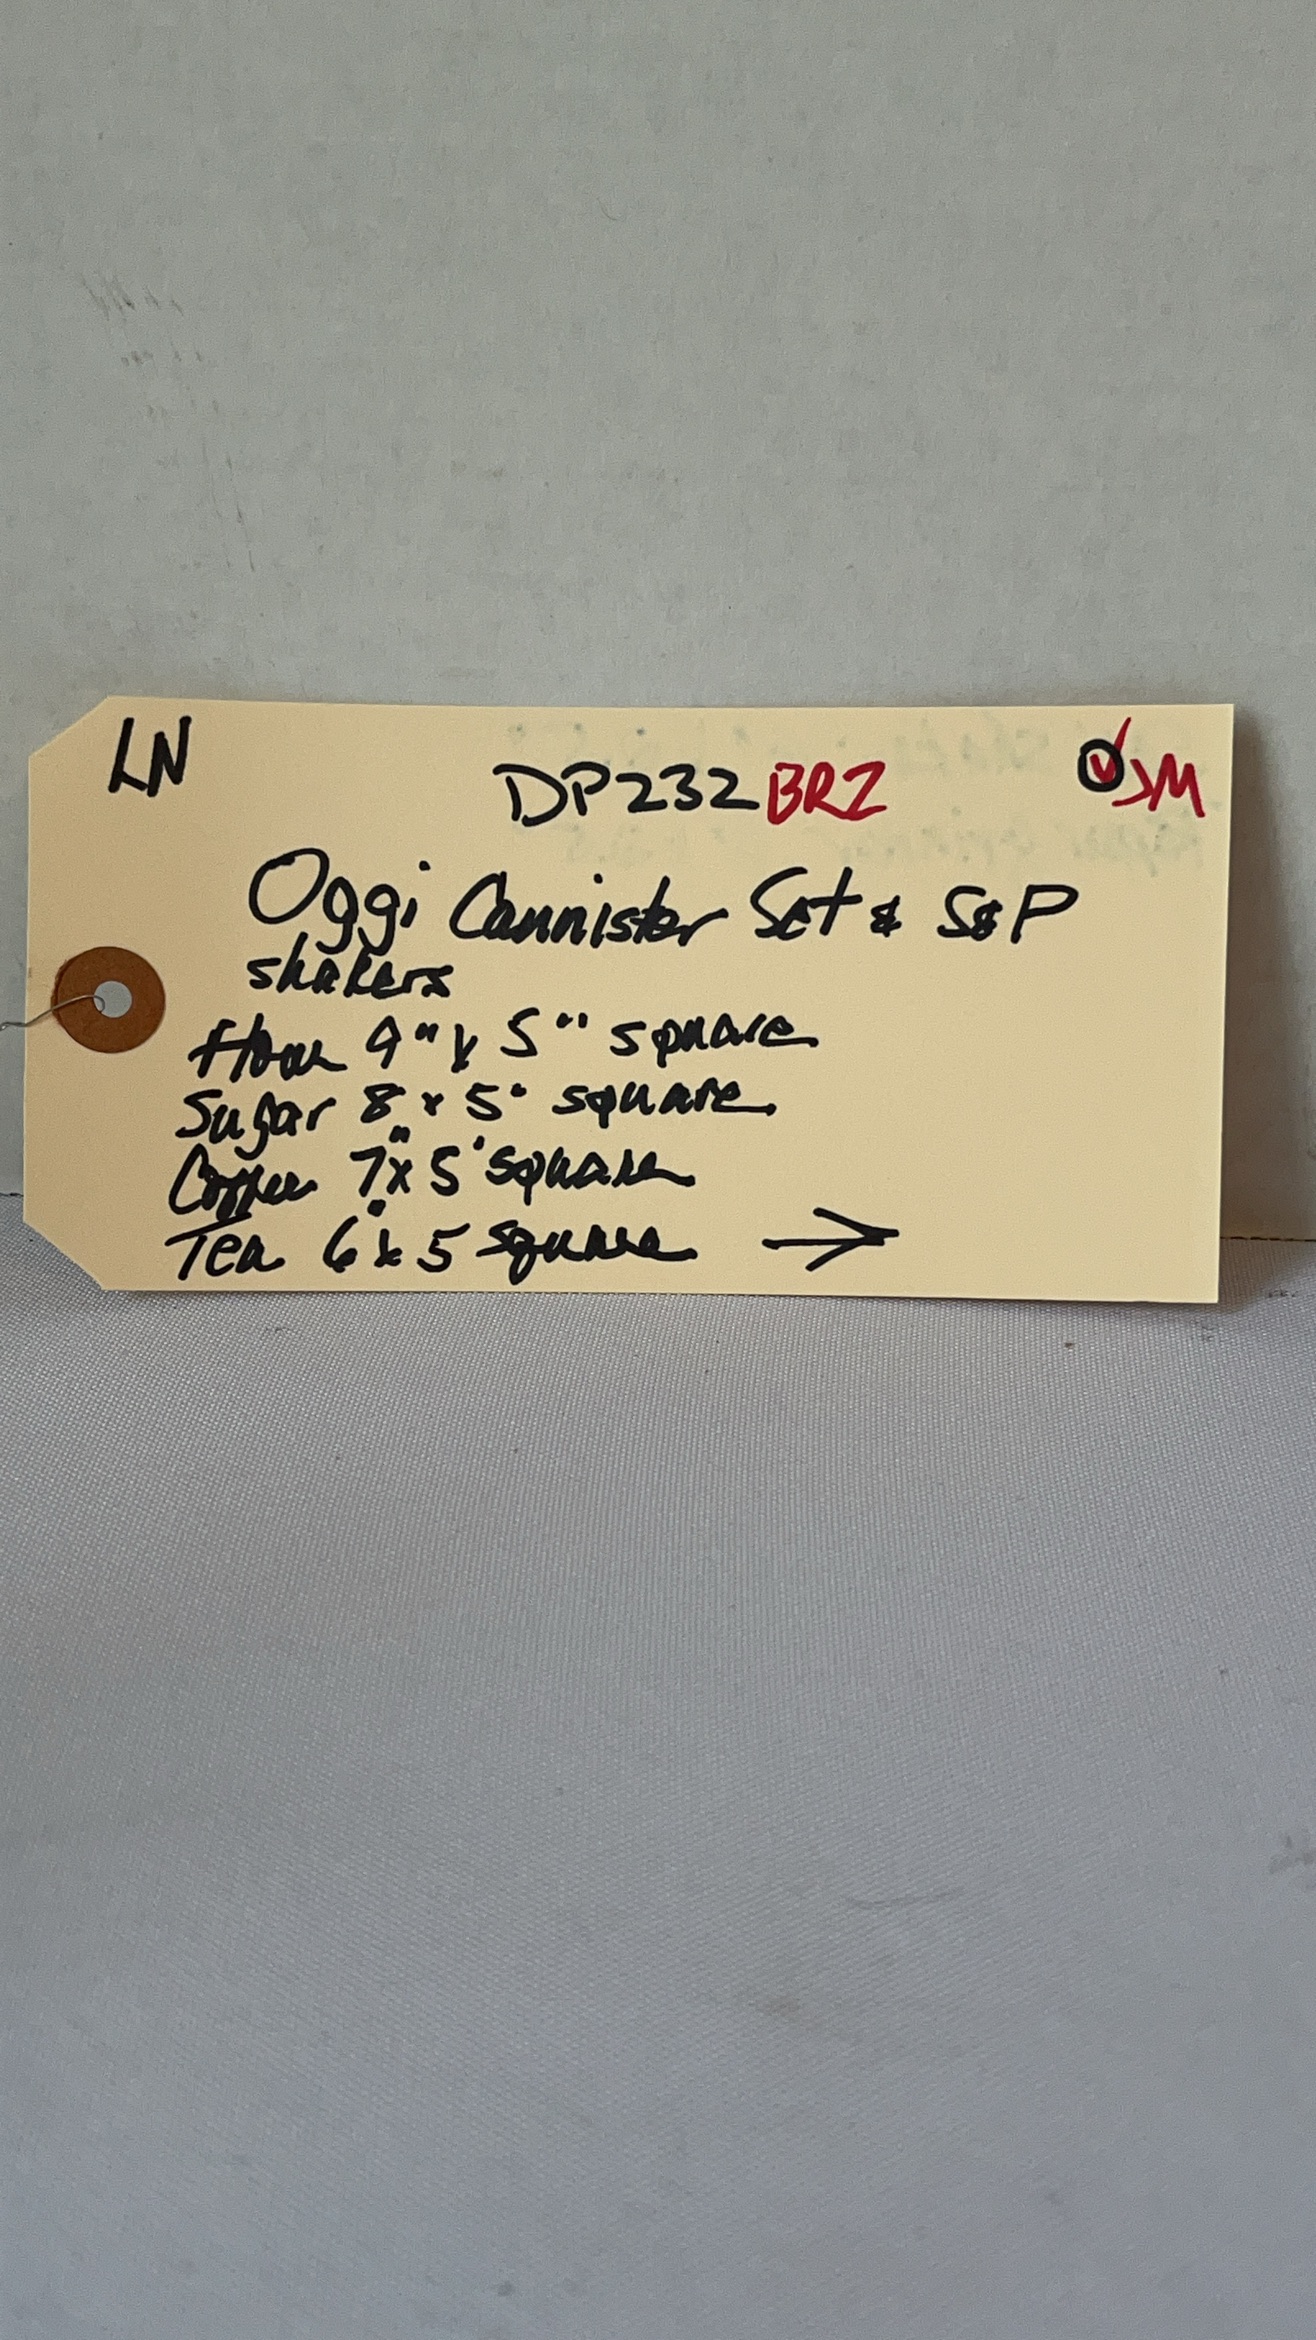 LN
DP232BRZ
JM
Oggi Cannister Set & S&P
shakers
Flour 9" x 5" square
Sugar 8 x 5" square
Coffee 7" x 5" square
Tea 6" x 5 square →